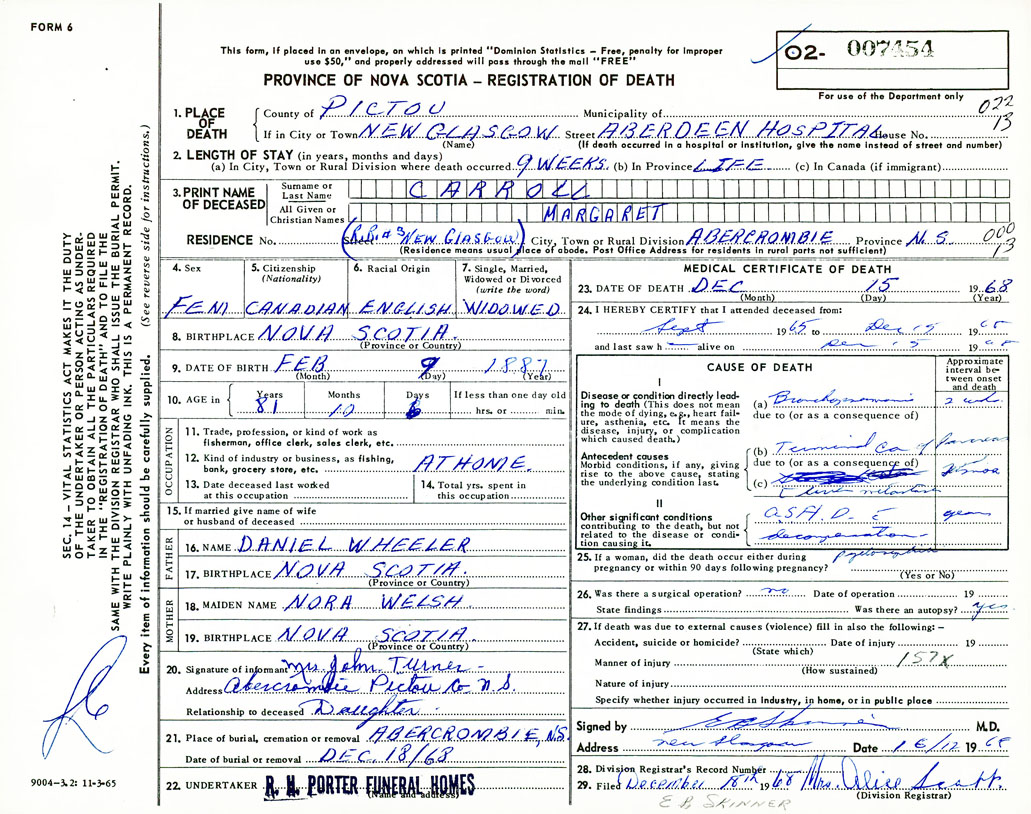 FORM 6
This form, if placed in an envelope, on which is printed "Dominion Statistics – Free, penalty for improper
use $50," and properly addressed will pass through the mail "FREE"
PROVINCE OF NOVA SCOTIA – REGISTRATION OF DEATH
02- 007454
For use of the Department only
022
13
SEC. 14 – VITAL STATISTICS ACT MAKES IT THE DUTY
OF THE UNDERTAKER OR PERSON ACTING AS UNDER-
TAKER TO OBTAIN ALL THE PARTICULARS REQUIRED
IN THE "REGISTRATION OF DEATH" AND TO FILE THE
SAME WITH THE DIVISION REGISTRAR WHO SHALL ISSUE THE BURIAL PERMIT.
WRITE PLAINLY WITH UNFADING INK. THIS IS A PERMANENT RECORD.
Every item of information should be carefully supplied. (See reverse side for instructions.)
9004–3.2: 11-3-65
1. PLACE OF DEATH
County of PICTOU Municipality of
If in City or Town NEW GLASGOW Street ABERDEEN HOSPITAL House No.
(Name) (If death occurred in a hospital or institution, give the name instead of street and number)
2. LENGTH OF STAY (in years, months and days)
(a) In City, Town or Rural Division where death occurred 9 WEEKS (b) In Province LIFE (c) In Canada (if immigrant)
3. PRINT NAME OF DECEASED
Surname or Last Name CARROLL
All Given or Christian Names MARGARET
RESIDENCE No. Street (R.R. # 3 NEW GLASGOW) City, Town or Rural Division ABERCROMBIE Province N.S.
000
13
(Residence means usual place of abode. Post Office Address for residents of rural parts not sufficient)
4. Sex FEM
5. Citizenship (Nationality) CANADIAN
6. Racial Origin ENGLISH
7. Single, Married, Widowed or Divorced (write the word) WIDOWED
8. BIRTHPLACE NOVA SCOTIA.
(Province or Country)
9. DATE OF BIRTH FEB 9 1887
(Month) (Day) (Year)
10. AGE in Years 81 Months 10 Days 6 If less than one day old hrs. or min.
OCCUPATION
11. Trade, profession, or kind of work as
fisherman, office clerk, sales clerk, etc.
12. Kind of industry or business, as fishing,
bank, grocery store, etc. AT HOME.
13. Date deceased last worked
at this occupation
14. Total yrs. spent in
this occupation
15. If married give name of wife
or husband of deceased
FATHER
16. NAME DANIEL WHEELER
17. BIRTHPLACE NOVA SCOTIA.
(Province or Country)
MOTHER
18. MAIDEN NAME NORA WELSH
19. BIRTHPLACE NOVA SCOTIA.
(Province or Country)
20. Signature of informant Mrs John Turner
Address Abercrombie Pictou Co N.S.
Relationship to deceased Daughter
21. Place of burial, cremation or removal ABERCROMBIE, N.S.
Date of burial or removal DEC. 18/68
22. UNDERTAKER R. H. PORTER FUNERAL HOMES
(Name and address)
MEDICAL CERTIFICATE OF DEATH
23. DATE OF DEATH DEC 15 1968
(Month) (Day) (Year)
24. I HEREBY CERTIFY that I attended deceased from:
Sept 1965 to Dec 15 19
and last saw h alive on Dec 15 19
CAUSE OF DEATH
Approximate interval between onset and death
I
Disease or condition directly leading to death (This does not mean the mode of dying, e.g., heart failure, asthenia, etc. It means the disease, injury, or complication which caused death.)
(a) Bronchopneumonia 2 wks.
due to (or as a consequence of)
Antecedent causes
Morbid conditions, if any, giving rise to the above cause, stating the underlying condition last.
(b) Terminal Ca of pancreas
due to (or as a consequence of)
(c)
liver metastases
II
Other significant conditions
contributing to the death, but not related to the disease or condition causing it.
A.S.H.D. years
decompensation
pyelonephritis
25. If a woman, did the death occur either during
pregnancy or within 90 days following pregnancy?
(Yes or No)
26. Was there a surgical operation? no Date of operation 19
State findings Was there an autopsy? yes
27. If death was due to external causes (violence) fill in also the following: –
Accident, suicide or homicide? Date of injury 19
(State which)
Manner of injury 157X
(How sustained)
Nature of injury
Specify whether injury occurred in Industry, in home, or in public place
Signed by E B Skinner M.D.
Address New Glasgow Date 16/12 1968
28. Division Registrar's Record Number
29. Filed December 18th 1968 Mrs. Alice Scott.
(Division Registrar)
E B SKINNER